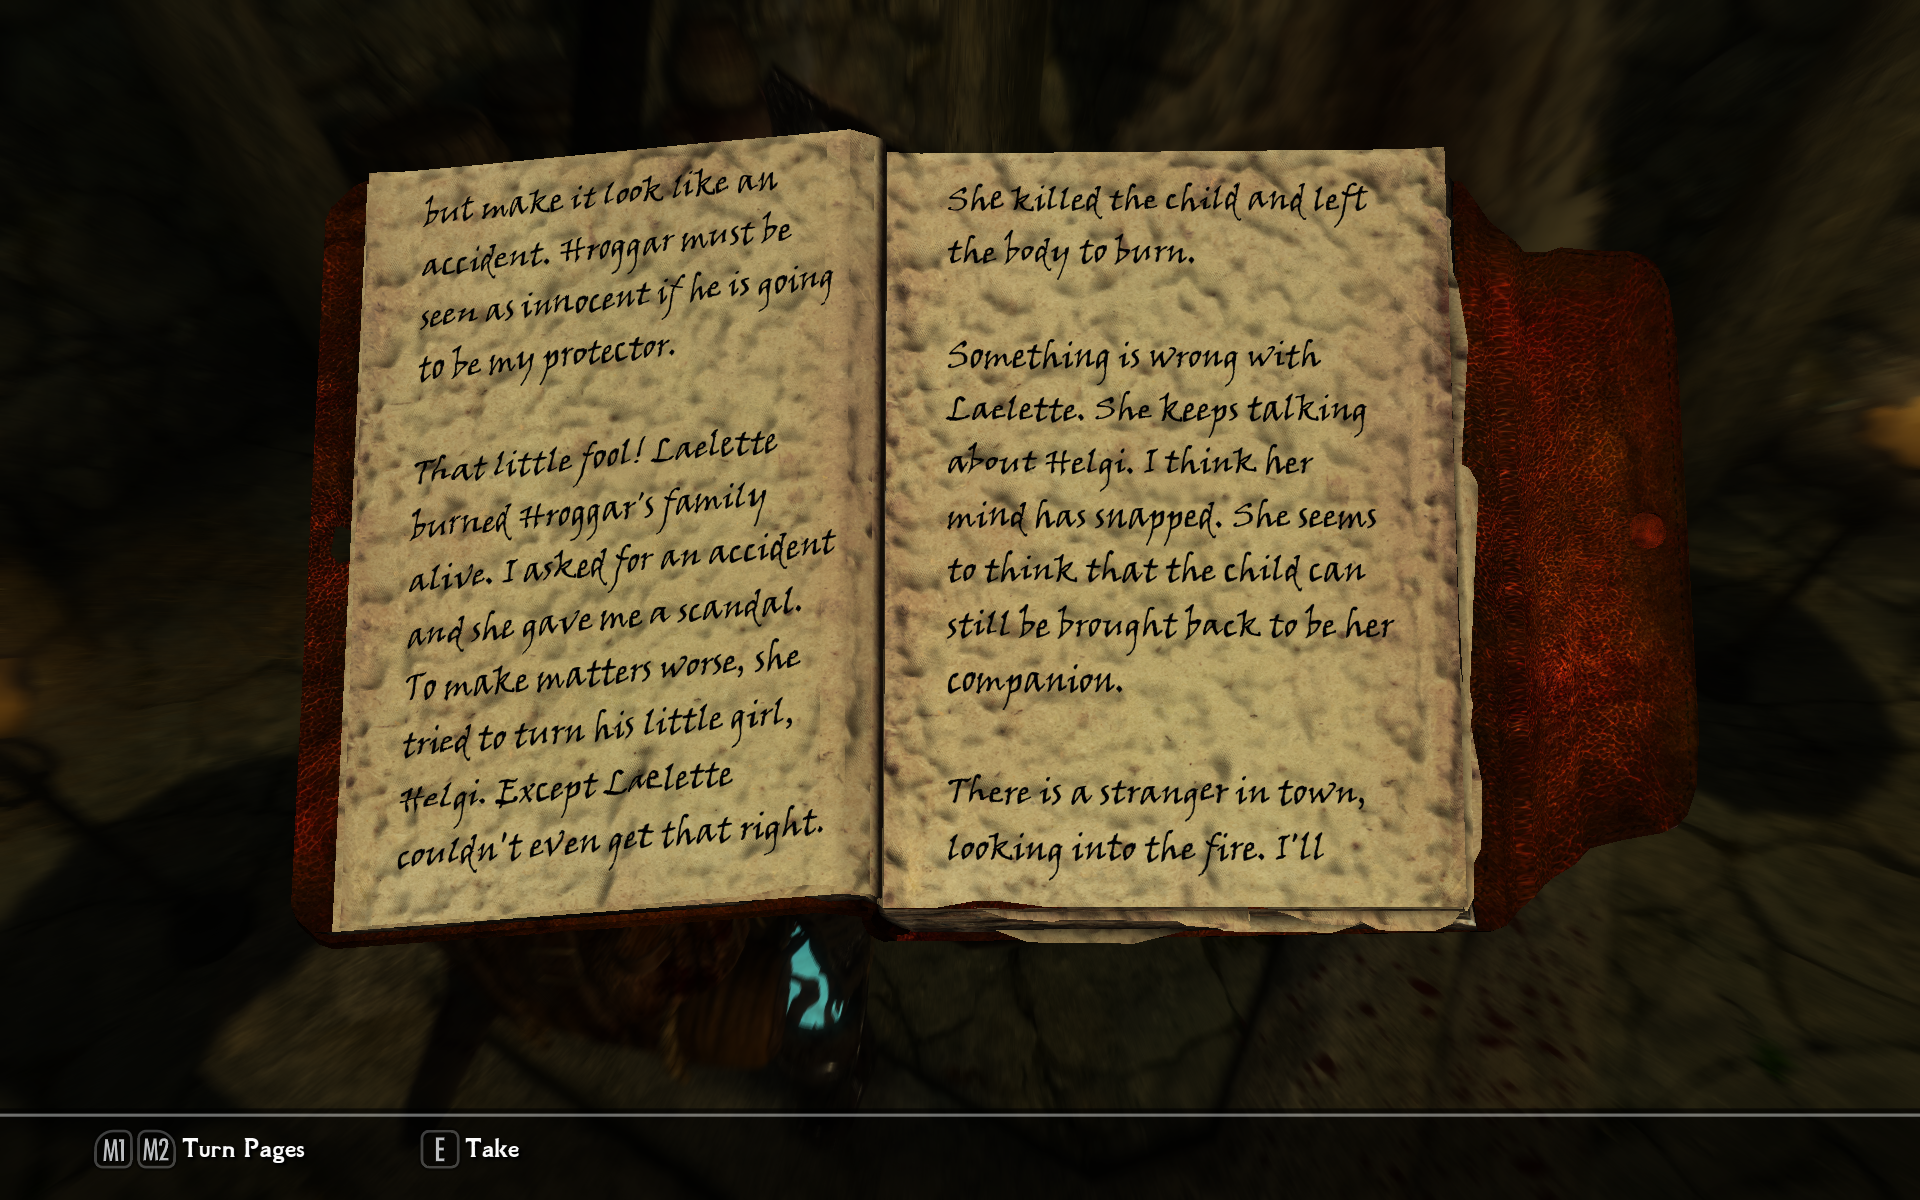 but make it look like an
accident. Hroggar must be
seen as innocent if he is going
to be my protector.
That little fool! Laelette
burned Hroggar's family
alive. I asked for an accident
and she gave me a scandal.
To make matters worse, she
tried to turn his little girl,
Helgi. Except Laelette
couldn't even get that right.
She killed the child and left
the body to burn.
Something is wrong with
Laelette. She keeps talking
about Helgi. I think her
mind has snapped. She seems
to think that the child can
still be brought back to be her
companion.
There is a stranger in town,
looking into the fire. I'll
M1 M2 Turn Pages E Take